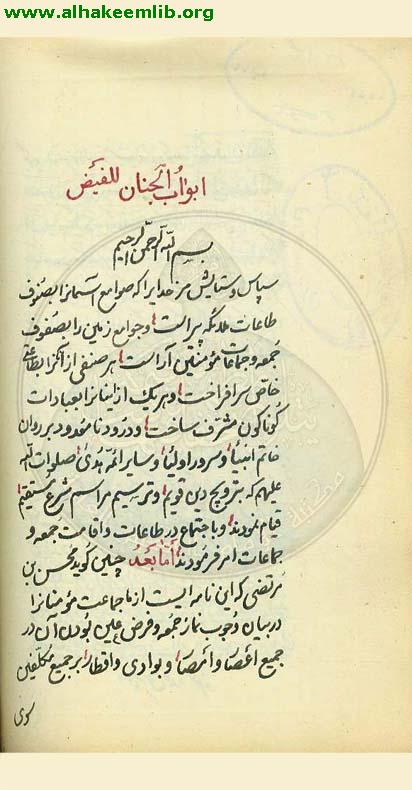 www.alhakeemlib.org
ابواب الجنان للفیض
بسم الله الرحمن الرحیم
سپاس و ستایش مر خدایرا که صوامع آسمانرا بصنوف
طاعات ملائکه پیراست و جوامع زمین را بصفوف
جمعه و جماعات مؤمنین آراست هر صنفی از آنرا بطاعتی
خاص سرافراخت و هر یک از اینانرا بعبادات
کوناکون مشرف ساخت و درود نامحدود بر روان
خاتم انبیا و سرور اولیا و سایر ائمه هدی صلوات الله
علیهم که بترویج دین قویم و ترسیم مراسم شرع مستقیم
قیام نمودند و باجتماع در طاعات و اقامت جمعه و
جماعات امر فرمودند اما بعد چنین کوید محسن بن
مرتضی که این نامه ایست از ما جماعت مؤمنانرا
در بیان وجوب نماز جمعه و فرض عین بودن آن در
جمیع اعصار و امصار و بوادی و اقطار بر جمیع مکلفین